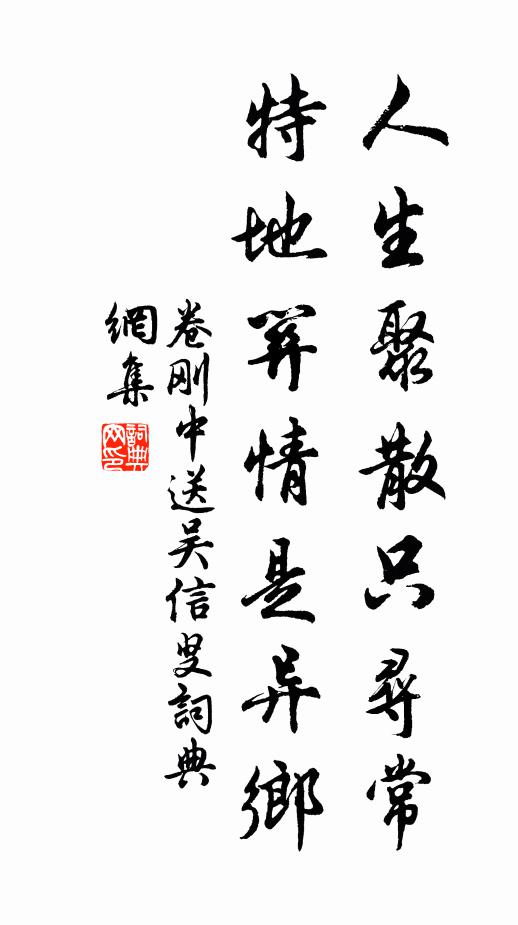 人生聚散只尋常
特地關情是异鄉
卷刚中送吴信叟詞典
網集
詞典
网印